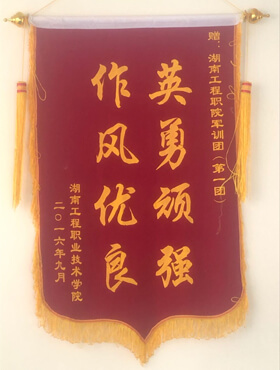 赠：湖南工程职院军训团（第一团）
英勇顽强
作风优良
湖南工程职业技术学院
二〇一六年九月